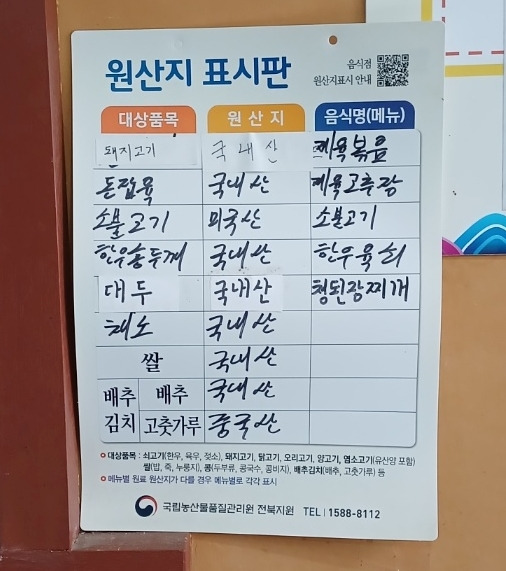 원산지 표시판
음식점
원산지표시 안내
대상품목 원산지 음식명(메뉴)
돼지고기 국내산 제육볶음
돈탑육 국내산 제육고추장
소불고기 미국산 소불고기
한우송두깨 국내산 한우육회
대두 국내산 청된장찌개
채소 국내산
쌀 국내산
배추 배추 국내산
김치 고춧가루 중국산
대상품목 : 쇠고기(한우, 육우, 젖소), 돼지고기, 닭고기, 오리고기, 양고기, 염소고기(유산양 포함)
쌀(밥, 죽, 누룽지), 콩(두부류, 콩국수, 콩비지), 배추김치(배추, 고춧가루) 등
메뉴별 원료 원산지가 다를 경우 메뉴별로 각각 표시
국립농산물품질관리원 전북지원 TEL | 1588-8112